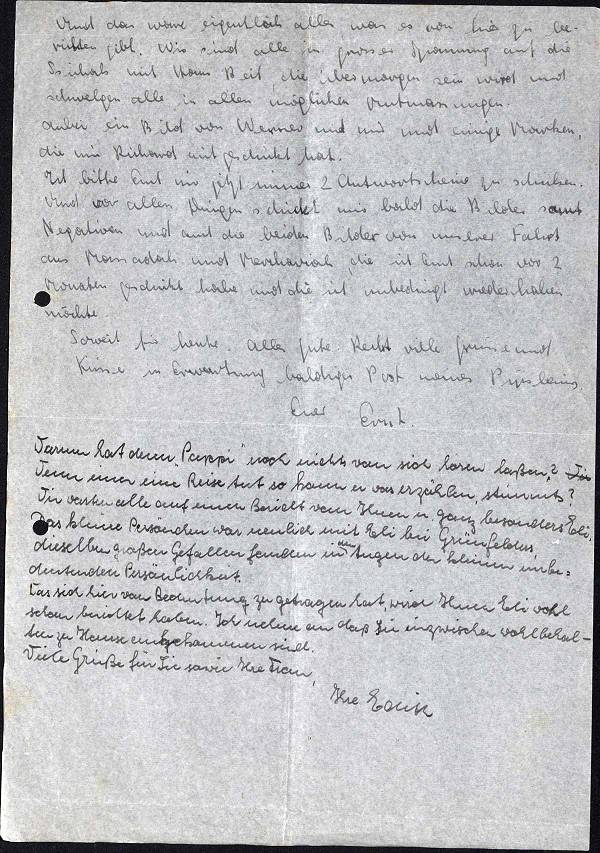 Und das wäre eigentlich alles was es von hier zu be-
richten gibt. Wir sind alle in grosser Spannung auf die
mit Beit, die übermorgen sein wird und
schwelgen alle in allen möglichen Mutmassungen.
anbei ein Bild von Werner und mir und einige Marken,
die mir Richard mitgeschickt hat.
Ich bitte Euch mir jetzt immer 2 Antwortscheine zu schicken.
Und vor allen Dingen schickt mir bald die Bilder samt
Negativen und auch die beiden Bilder von unserer Fahrt
aus und die ich Euch schon vor 2
Monaten geschickt habe und die ich unbedingt wiederhaben
möchte.
Soweit für heute. Alles gute. Recht viele Grüsse und
Küsse in Erwartung baldiger Post
Euer Ernst.
Warum hat denn "Pappi" noch nichts von sich hören laßen?
Wenn einer eine Reise tut so kann er was erzählen, stimmts?
Wir warten alle auf einen Bericht von Ihnen u. ganz besonders Eli.
Das kleine Persönchen war neulich mit Eli bei Grünfelders,
dieselben großen Gefallen fanden in den Augen der kleinen unbe-
deutenden Persönlichkeit.
Was sich hier von Bedeutung zugetragen hat, wird Ihnen Eli wohl
schon berichtet haben. Ich nehme an daß Sie inzwischen wohlbehal-
ten zu Hause angekommen sind.
Viele Grüße für Sie sowie Ihre Frau,
Ihre